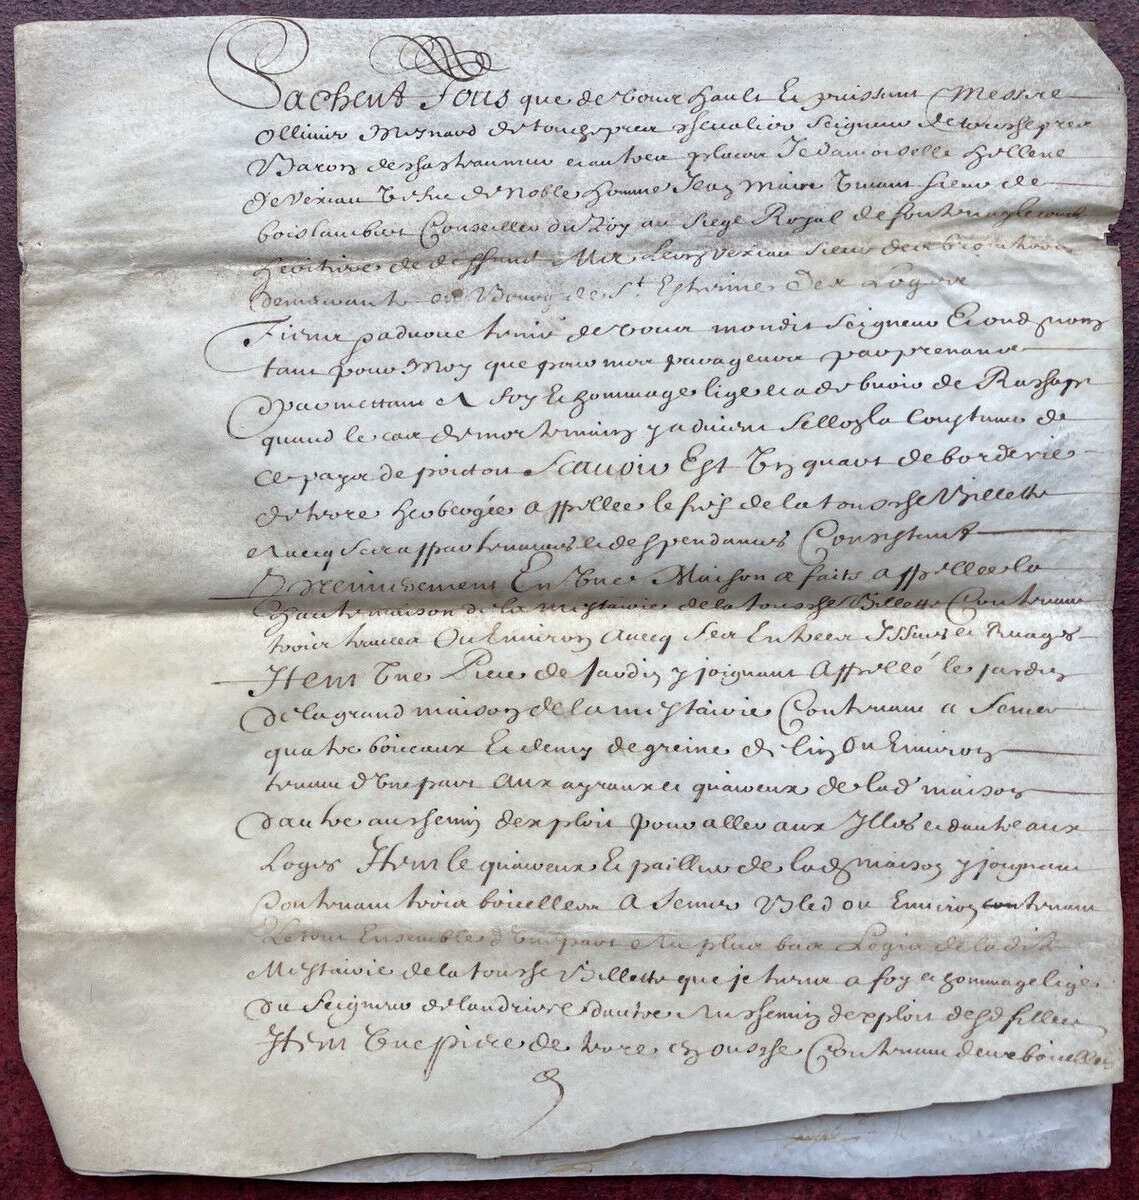 Sachent Tous que de vous hault Et puissent Messire
Ollivier Mesnard de touchepres chevalier Seigneur de tousshepres
Baron de chasteaumur et autres places Je damoiselle Hellene
de Veriau Vefve de Noble homme Jean Maire vivant sieur de
boislambert Conseiller du Roy au siege Royal de fontenay le conte
heritiere de deffunct Leon Veriau sieur de
demeurante en Bourg de St Estienne des Loges
Tiens & advoue tenir de vous mondit Seigneur
tant pour Moy que pour mes parageurs parprenans
& parmettans a foy Et hommage lige et a debvoir de Rachapt
quand le cas de mortemain y advient sellon la Coustume de
ce pays de poictou Scavoir Est un quart de borderie
de terre herbregée appellee le fief de la tousche Billette
avecq ses appartenances et despendances Consistant
Premierement En une Maison a faits appellee la
haute maison de la mestairie de la tousche Billette Contenant
trois travees Ou Environ avecq ses Entrees Issues et Ruages
Item Une Piece de Jardin y joignant Appellé le jardin
de la grand maison de la mestairie Contenant a Semer
quatre boiceaux Et demy de greine de lin Ou Environ
tenant d'Une part aux ayraux et quaireux de lad maison
d'autre au chemin d'exploit pour aller aux Illes et d'autre aux
Loges Item le quaireux Et pailler de lad maison y joignant
Contenant trois boicellees A Semer Bled ou Environ contenant
Le tout Ensemble d'une part au plus bas Logis de la dite
Mestairie de la tousche Billette que je tiens a foy et hommage lige
du Seigneur de landriere d'autre au chemin d'exploit
Item Une piece de terre en ousche Contenant deux boicellees